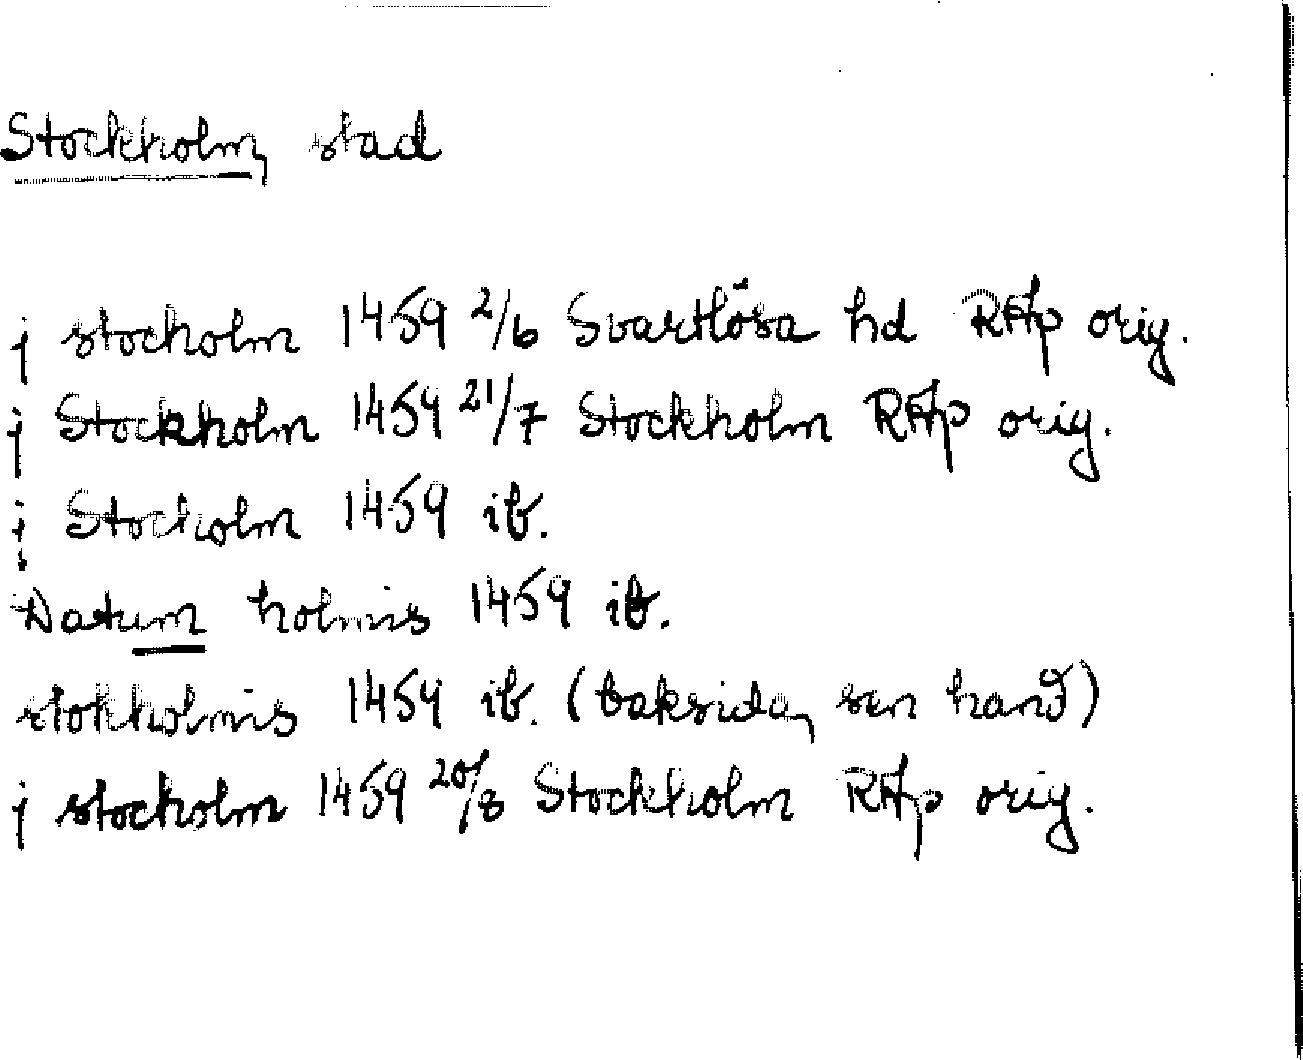 Stockholm, stad
j stocholm 1459 2/6 Svartlösa hd RAp orig.
j Stockholm 1459 21/7 Stockholm RAp orig.
j Stocholm 1459 ib.
Datum holmis 1459 ib.
stokholmis 1459 ib. (baksida, sen hand)
j stocholm 1459 20/8 Stockholm RAp orig.